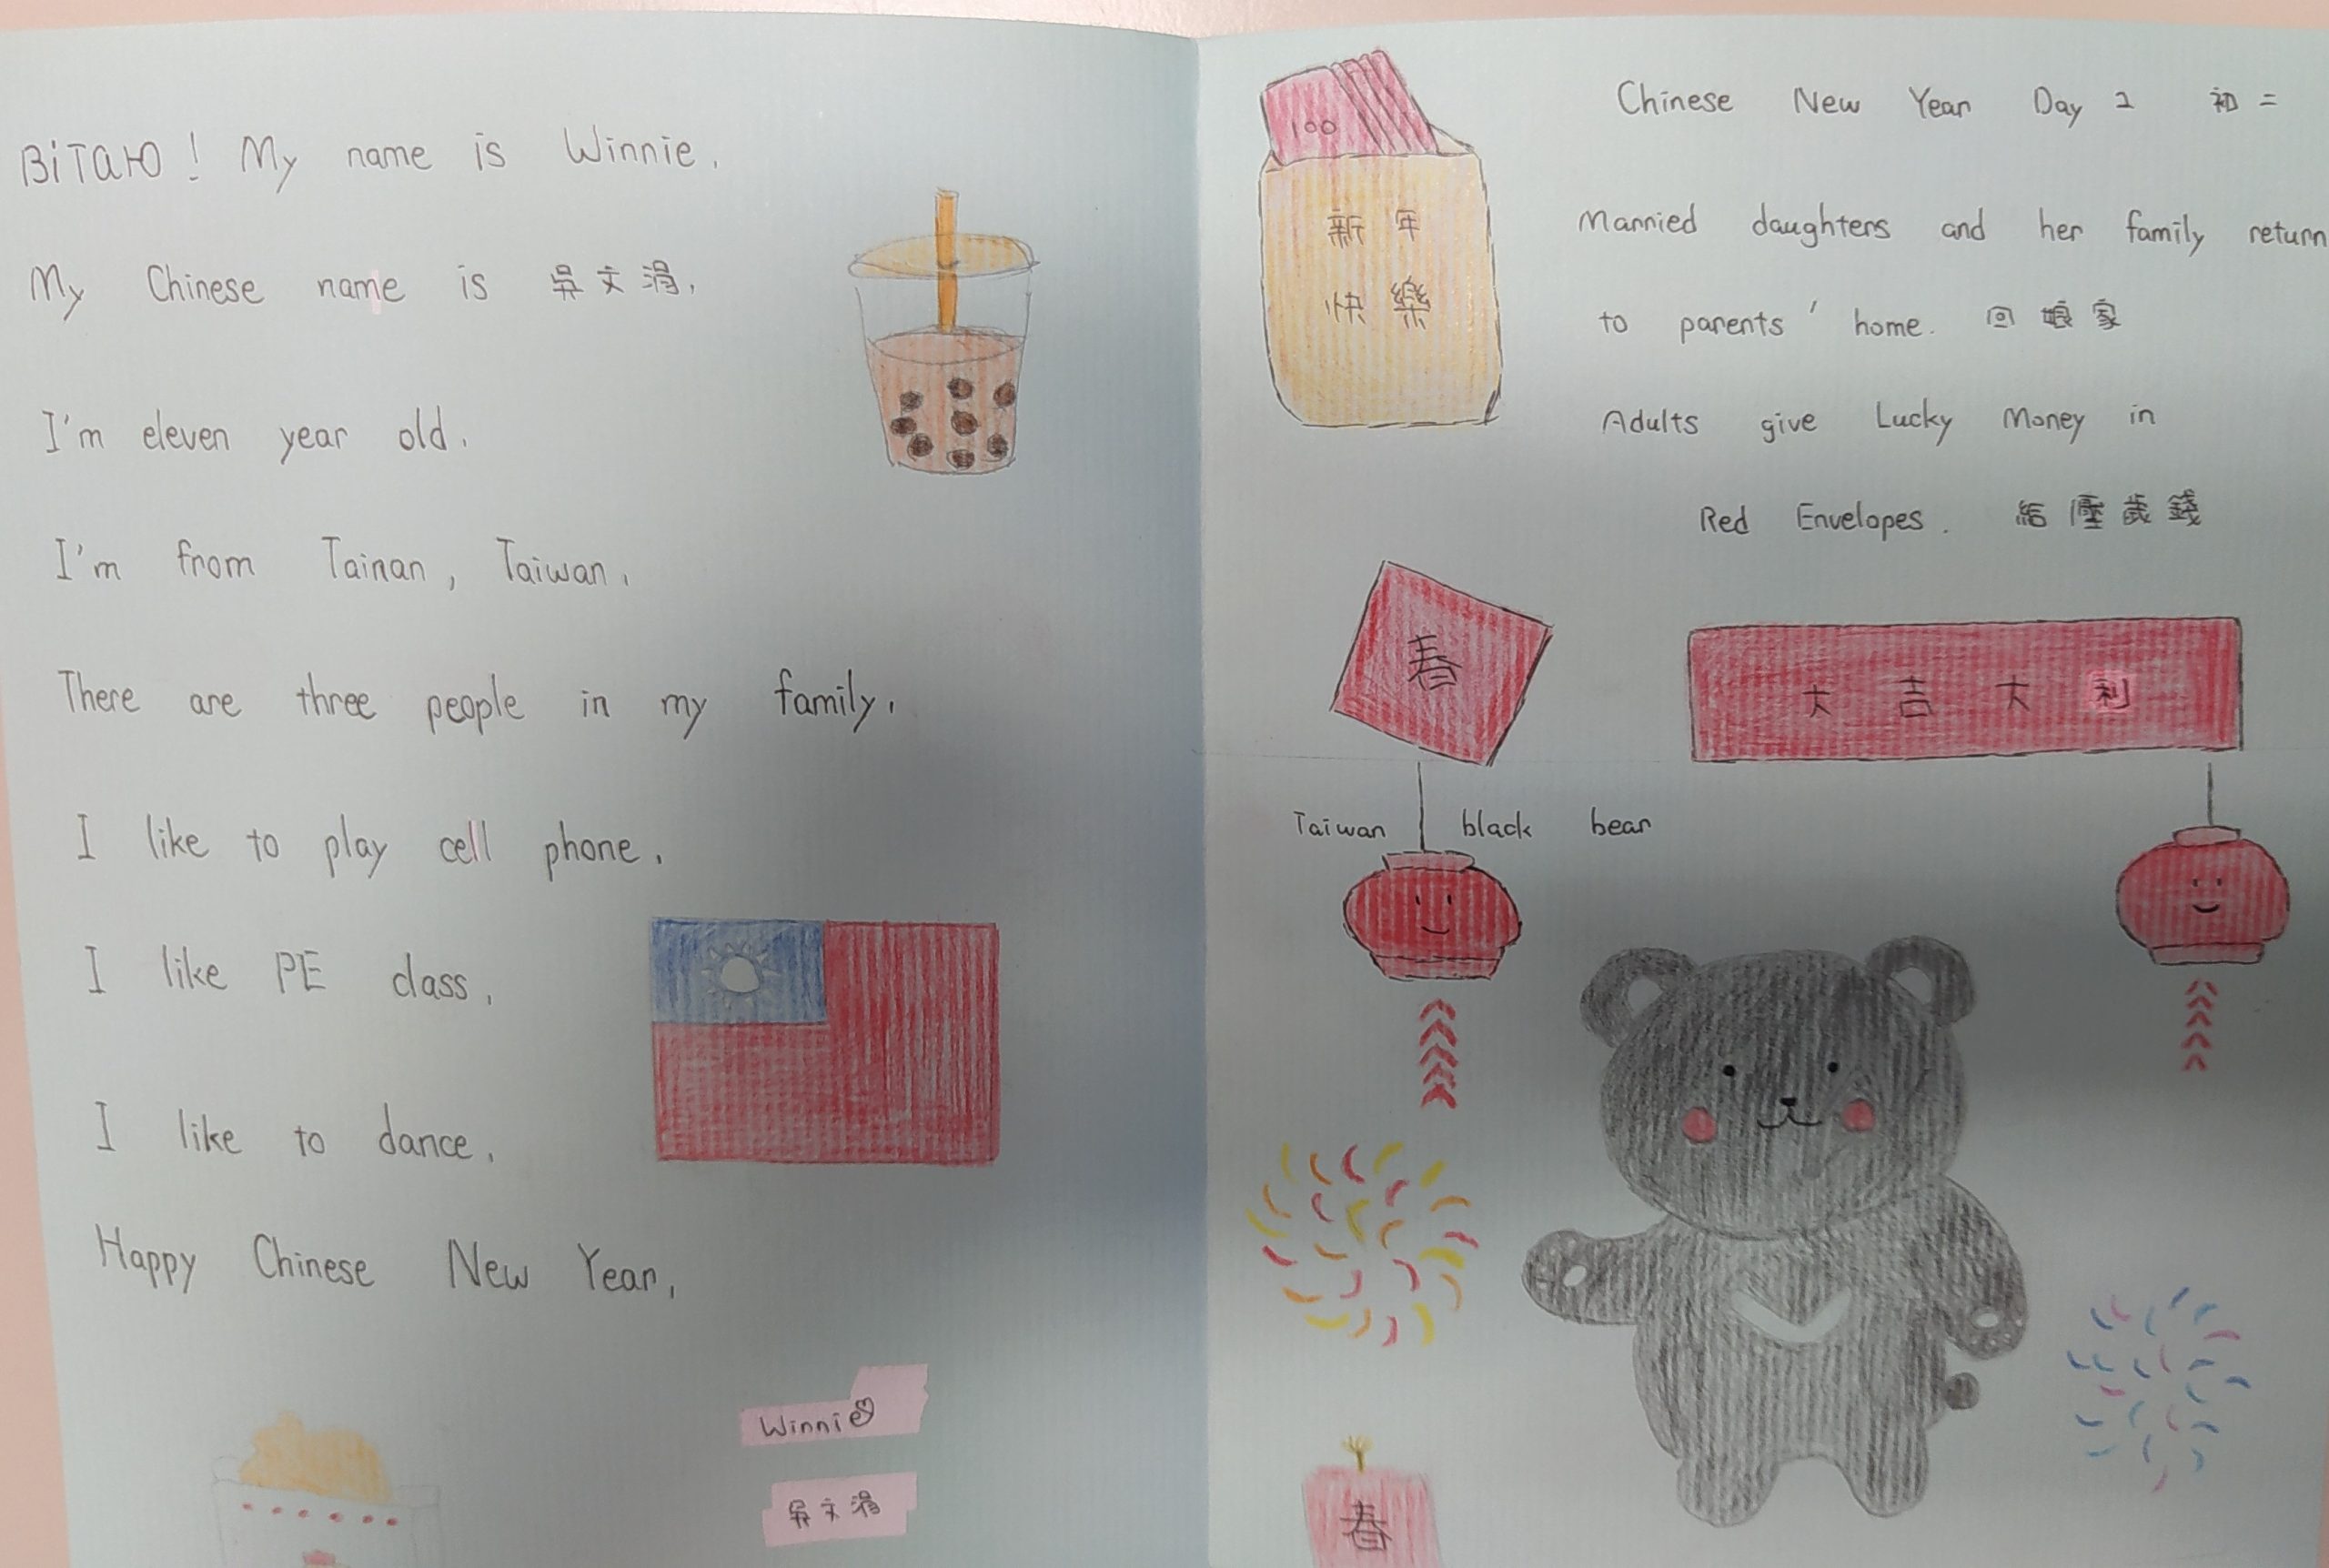 Вітаю! My name is Winnie.
My Chinese name is 吳文涓.
I'm eleven year old.
I'm from Tainan, Taiwan.
There are three people in my family.
I like to play cell phone.
I like PE class.
I like to dance.
Happy Chinese New Year.
Winnie
吳文涓
100
新年
快樂
Chinese New Year Day 2 初二
Married daughters and her family return
to parents' home. 回娘家
Adults give Lucky Money in
Red Envelopes. 給壓歲錢
春
大吉大利
Taiwan black bear
春